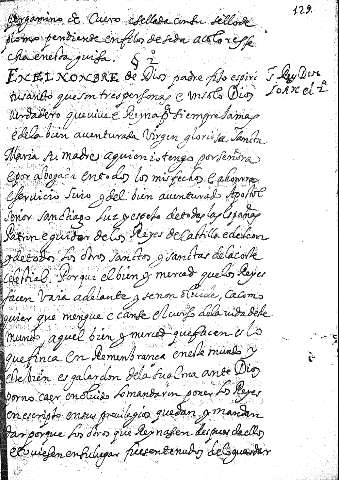 129.
pergamino de Cuero esellada con su sello de
plomo pendiente en filos de seda a colores fe
cha en esta guisa.
EN EL NOMBRE de Dios padre fijo espiri
tu santo que son tres personas e un solo Dios
verdadero que vive e Reyna por siempre jamas
e de la bien aventurada Virgen gloriosa Sancta
Maria su madre a quien io tengo por señora
e por abogada en todos los mis fechos e a honrra
e servicio suyo y del bien aventurado Apostol
Señor Sanctiago luz y espejo de todas las Españas
Patron e guiador de los Reyes de Castilla e de Leon
y de todos los otros sanctos y sanctas de la corte
celestial. Porque el bien y merced que los Reyes
facen vaya adelante y se non olvide, ca como
quier que mengue e canse el curso de la vida deste
mundo, aquel bien y merced que facen es lo
que finca en Remembranza en este mundo y
este bien es galardon de la su alma ante Dios
por no caer en olvido lo mandaron poner los Reyes
en escripto en sus previlegios que dan, y mandan
dar porque los otros que Reynasen despues de ellos
e tuviesen en su lugar fuesen tenudos de lo guardar